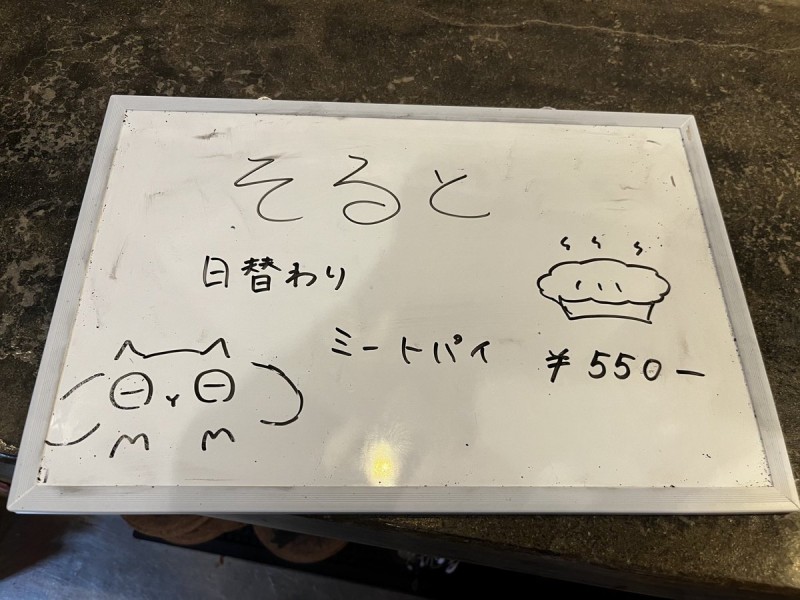 そると
日替わり
ミートパイ ¥550ー